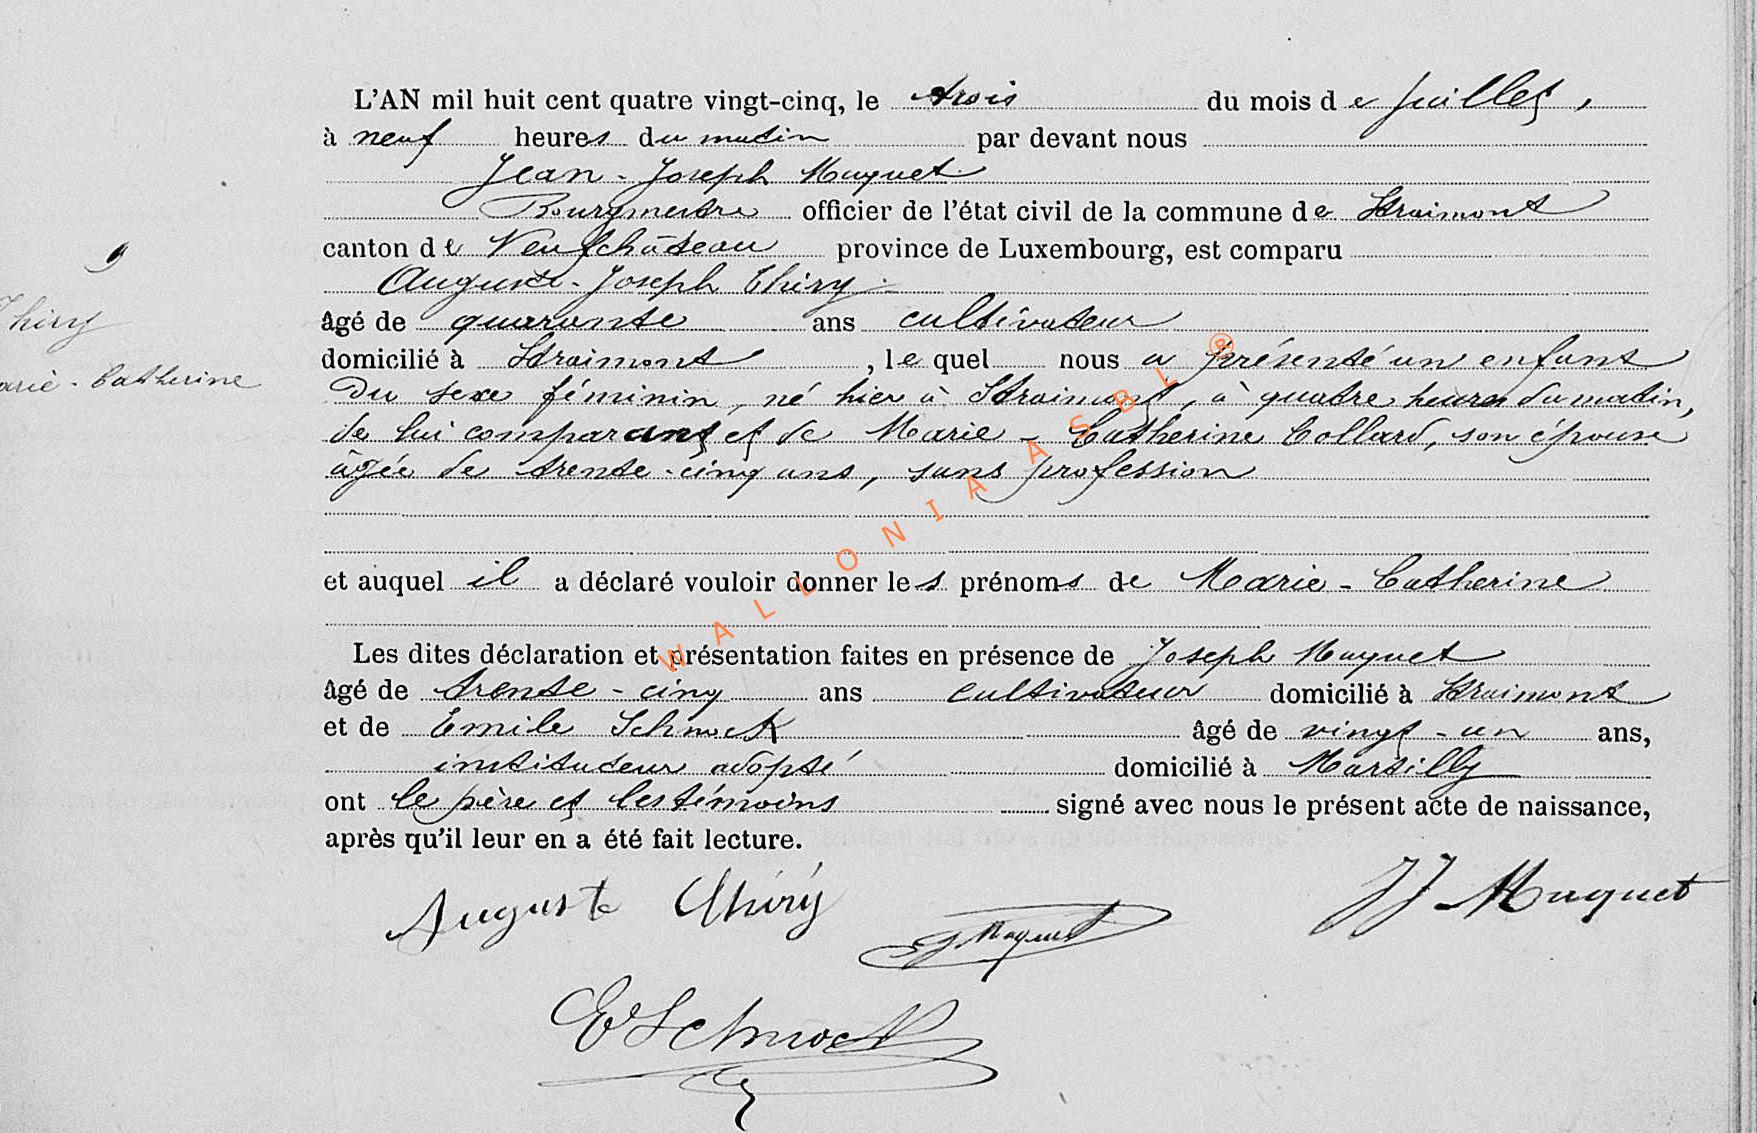 L'AN mil huit cent quatre vingt-cinq, le trois du mois de juillet,
à neuf heures du matin par devant nous
Jean-Joseph Maquet
Bourgmestre officier de l'état civil de la commune de Straimont
9
canton de Neufchâteau province de Luxembourg, est comparu
Auguste-Joseph Thiry
Thiry
âgé de quarante ans cultivateur
domicilié à Straimont, le quel nous a présenté un enfant
arie-Catherine
Du sexe féminin, né hier à Straimont, à quatre heures du matin,
de lui comparant et de Marie-Catherine Collard, son épouse
âgée de trente-cinq ans, sans profession
et auquel il a déclaré vouloir donner les prénoms de Marie-Catherine
Les dites déclaration et présentation faites en présence de Joseph Maquet
âgé de trente-cinq ans cultivateur domicilié à Straimont
et de Emile Schmock âgé de vingt-un ans,
instituteur adopté domicilié à Martilly
ont le père et les témoins signé avec nous le présent acte de naissance,
après qu'il leur en a été fait lecture.
Auguste Thiry
JJ Maquet
Maquet
E Schmock
WALLONIA ASBL ®